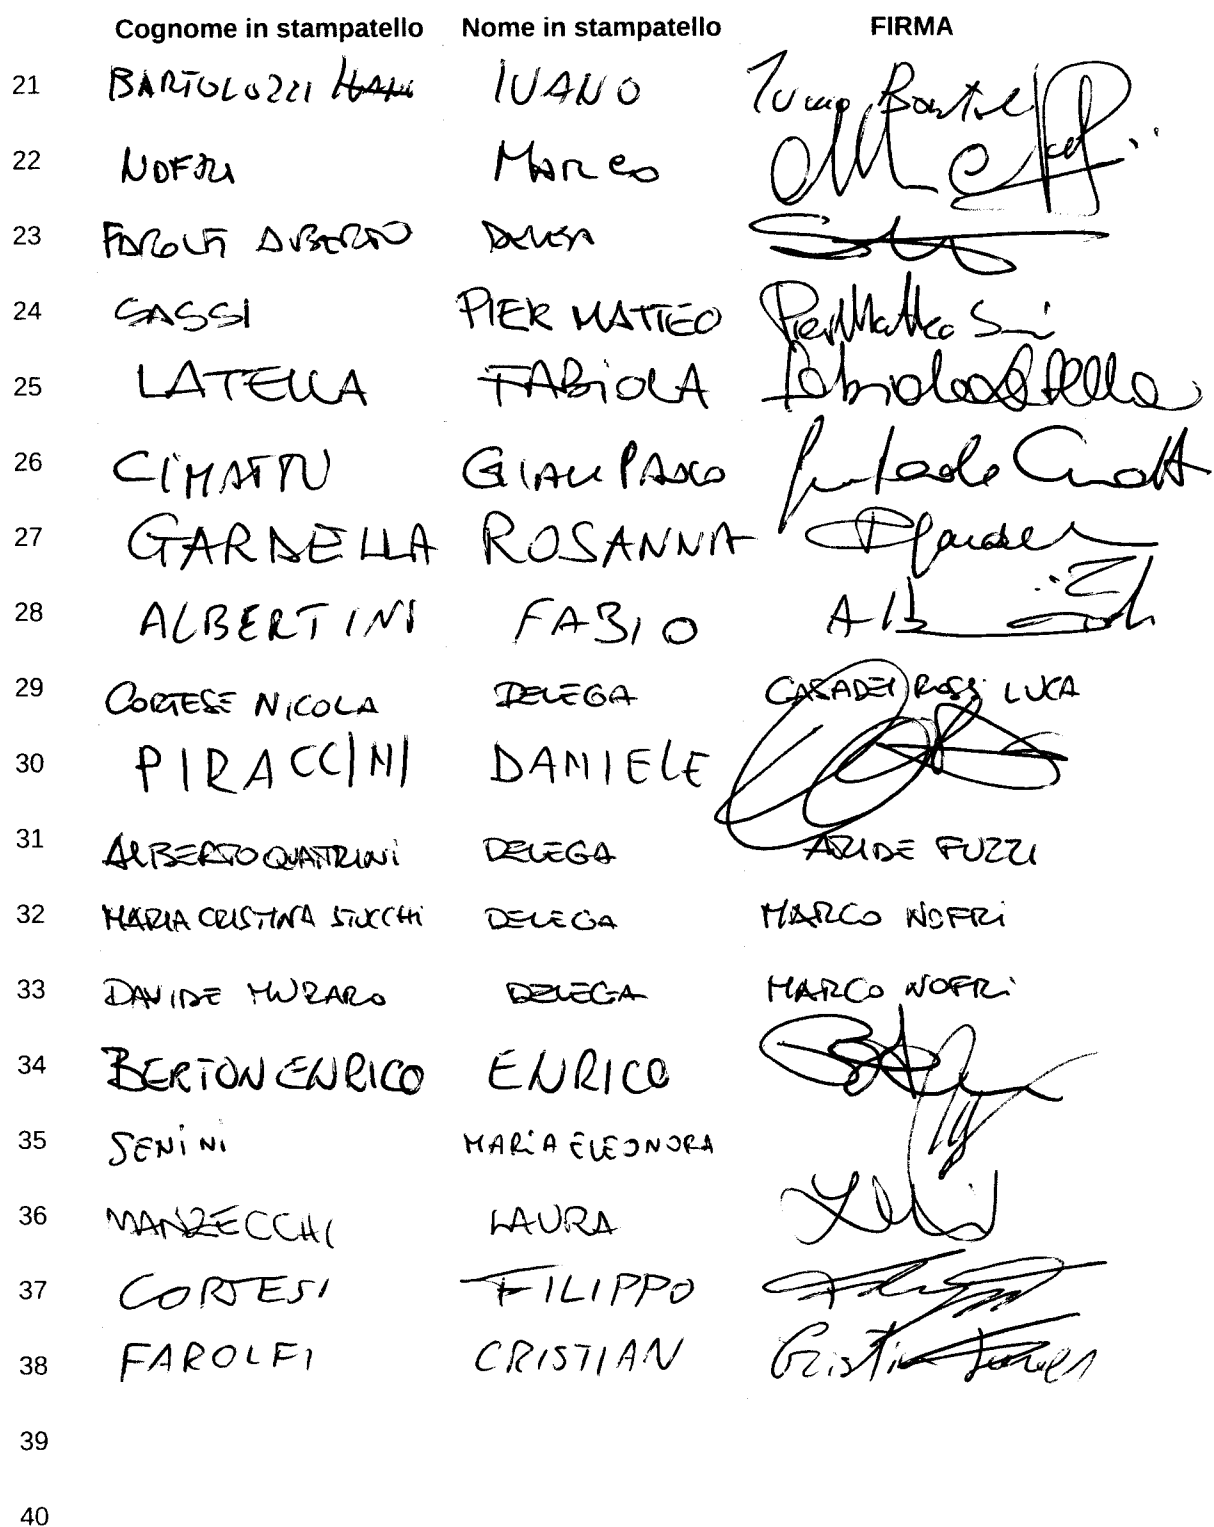 Cognome in stampatello Nome in stampatello FIRMA
21 BARTOLOZZI IVANO Ivano Bartol
22 NOFRI MARCO
23 FAROLFI ALBERTO DELEGA
24 SASSI PIER MATTEO Pier Matteo
25 LATELLA FABIOLA Fabiola Latella
26 CIMATTI GIAN PAOLO
27 GARDELLA ROSANNA
28 ALBERTINI FABIO
29 CORTESE NICOLA DELEGA CASADEI ROSSI LUCA
30 PIRACCINI DANIELE
31 ALBERTO QUATTRINI DELEGA ARIDE FUZZI
32 MARIA CRISTINA STUCCHI DELEGA MARCO NOFRI
33 DAVIDE MURARO DELEGA MARCO NOFRI
34 BERTON ENRICO ENRICO
35 SENINI MARIA ELEONORA
36 MANZECCHI LAURA
37 CORTESI FILIPPO
38 FAROLFI CRISTIAN Cristian
39
40